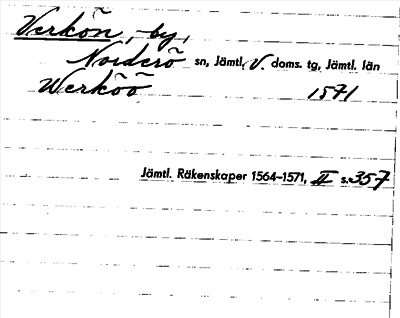 Verkön, by,
Norderö sn, Jämtl. V. doms. tg, Jämtl. län
Werköö 1571
Jämtl. Räkenskaper 1564–1571, II s. 357